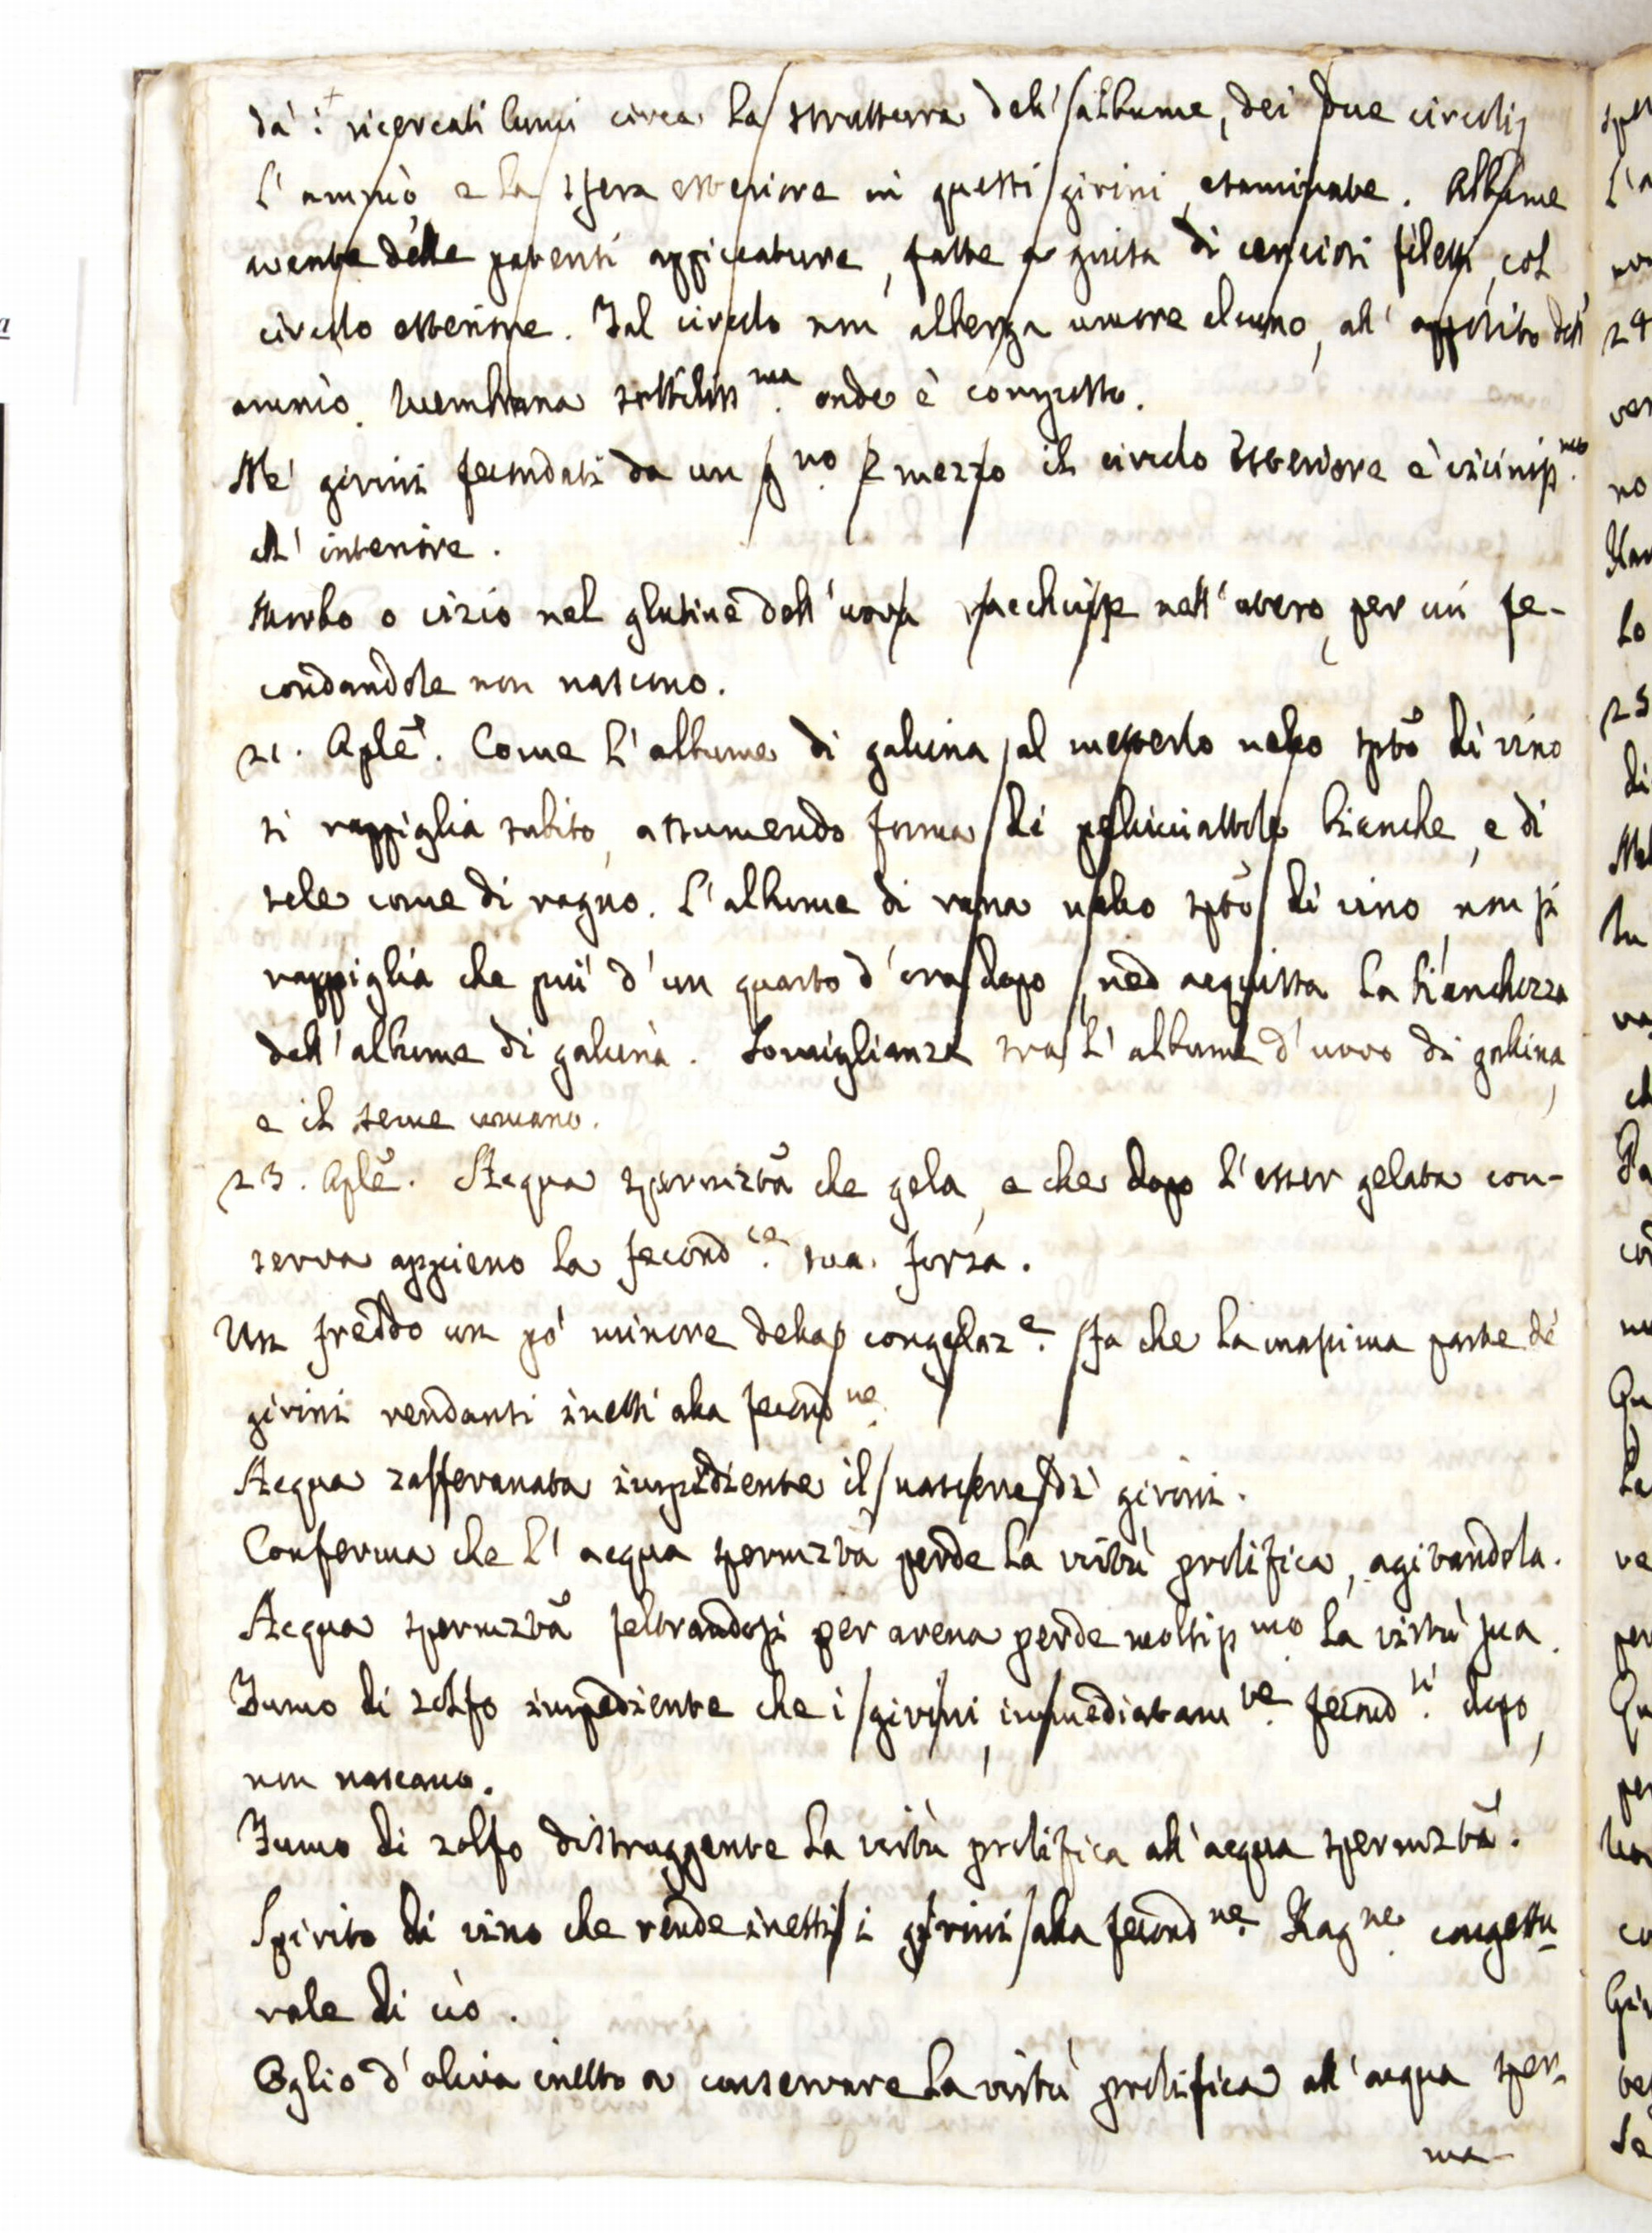 dà i ricercati lumi circa la struttura dell'albume, dei due circoli,
l'amnio, e la sfera esteriore in questi girini esaminate. Albume
avente delle patenti appiccature, fatte a guisa di cenciosi filetti, col
circolo esteriore. Tal circolo non alberga umore alcuno, all'opposito dell'
amnio. Membrana sottiliss.ma onde è composto.
Ne' girini fecondati da un g.no e mezzo il circolo esteriore è viciniss.mo
all'interiore.
Morbo o vizio nel glutine dell'uova racchiuse nell'utero, per cui fe-
condandole non nascono.
21. Aple. Come l'albume di galina al metterlo nello spto di vino
si rappiglia subito, assumendo forma di pelliciattole bianche, e di
tele come di ragno. L'albume di rana nello spto di vino non si
rappiglia che più d'un quarto d'ora dopo, ned acquista la bianchezza
dell'albume di galina. Somiglianza tra l'albume d'uovo di gallina,
e il seme umano.
23. Aple. Acqua spermzta che gela, e che dopo l'esser gelata con-
serva appieno la fecond.ce sua forza.
Un freddo un pò minore della congelaz.e fa che la massima parte de'
girini rendansi inetti alla fecond.ne
Acqua zafferanata impediente il nascere di girini.
Conferma che l'acqua spermzta perde la virtù prolifica, agitandola.
Acqua spermzta feltrandosi per arena perde moltiss.mo la virtù sua.
Fumo di zolfo impediente che i girini, immediatam.te fecond.ti dopo,
non nascano.
Fumo di zolfo distruggente la virtù prolifica all'acqua spermzta.
Spirito di vino che rende inetti i girini alla fecond.ne Rag.ne congettu-
rale di ciò.
Oglio d'oliva inetto a conservare la virtù prolifica all'acqua sper-
ma-